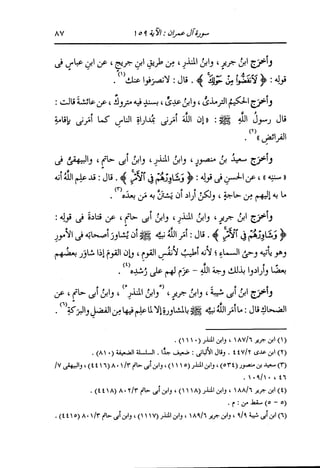 سورة آل عمران : الآية ١٥٩
٨٧
وأخرج ابنُ جريرٍ ، وابنُ المنذرِ ، من طريقِ ابنِ جريجٍ ، عن ابنِ عباسٍ فى
قولِه : ﴿ لَانفَضُّوا مِنْ حَوْلِكَ ﴾ . قال : لانصرَفوا عنك(١) .
وأخرج الحكيمُ الترمذىُّ ، وابنُ عدىٍّ ، بسندٍ فيه متروكٌ ، عن عائشةَ قالت :
قال رسولُ اللهِ ﷺ : «إن اللهَ أمَرنى بمُداراةِ الناسِ كما أمَرنى بإقامةِ
الفرائضِ»(٢) .
وأخرج سعيدُ بنُ منصورٍ ، وابنُ المنذرِ ، وابنُ أبى حاتمٍ ، والبيهقىُّ فى
«سننِه» ، عن الحسنِ فى قولِه : ﴿ وَشَاوِرْهُمْ فِى ٱلْأَمْرِ ﴾ . قال : قد علِم اللهُ أنه
ما به إليهم من حاجةٍ ، ولكن أراد أن يَستَنَّ به مَن بعدَه(٣) .
وأخرج ابنُ جريرٍ ، وابنُ المنذرِ ، وابنُ أبى حاتمٍ ، عن قتادةَ فى قولِه :
﴿ وَشَاوِرْهُمْ فِى ٱلْأَمْرِ ﴾ . قال : أمَر اللهُ نبيَّه ﷺ أن يُشاوِرَ أصحابَه فى الأمورِ
وهو يأتيه وحىُ السماءِ ؛ لأنه أطيبُ لأنفُسِ القومِ ، وإن القومَ إذا شاوَر بعضُهم
بعضًا وأرادوا بذلك وجهَ اللهِ - عزَم لهم على رُشْدِه(٤) .
وأخرج ابنُ أبى شيبةَ ، وابنُ جريرٍ ، (٥وابنُ المنذرِ٥) ، وابنُ أبى حاتمٍ ، عن
الضحاكِ قال : ما أمَر اللهُ نبيَّه ﷺ بالمشاورةِ إلا لما علِم فيها من الفضلِ والبركةِ(٦) .
(١) ابن جرير ١٨٧/٦ ، وابن المنذر (١١١٠) .
(٢) ابن عدى ٤٤٧/٢ . وقال الألبانى : ضعيف جدًّا . السلسلة الضعيفة (٨١٠) .
(٣) سعيد بن منصور (٥٣٤) ، وابن المنذر (١١١٥) ، وابن أبى حاتم ٨٠١/٣ (٤٤١٦) ، والبيهقى ٧/
٤٦ ، ١٠٩/١٠ .
(٤) ابن جرير ١٨٨/٦ ، وابن المنذر (١١١٨) ، وابن أبى حاتم ٨٠٢/٣ (٤٤١٨) .
(٥ - ٥) سقط من : م .
(٦) ابن أبى شيبة ٩/٩ ، وابن جرير ١٨٩/٦ ، وابن المنذر (١١١٧) ، وابن أبى حاتم ٨٠١/٣ (٤٤١٥) .